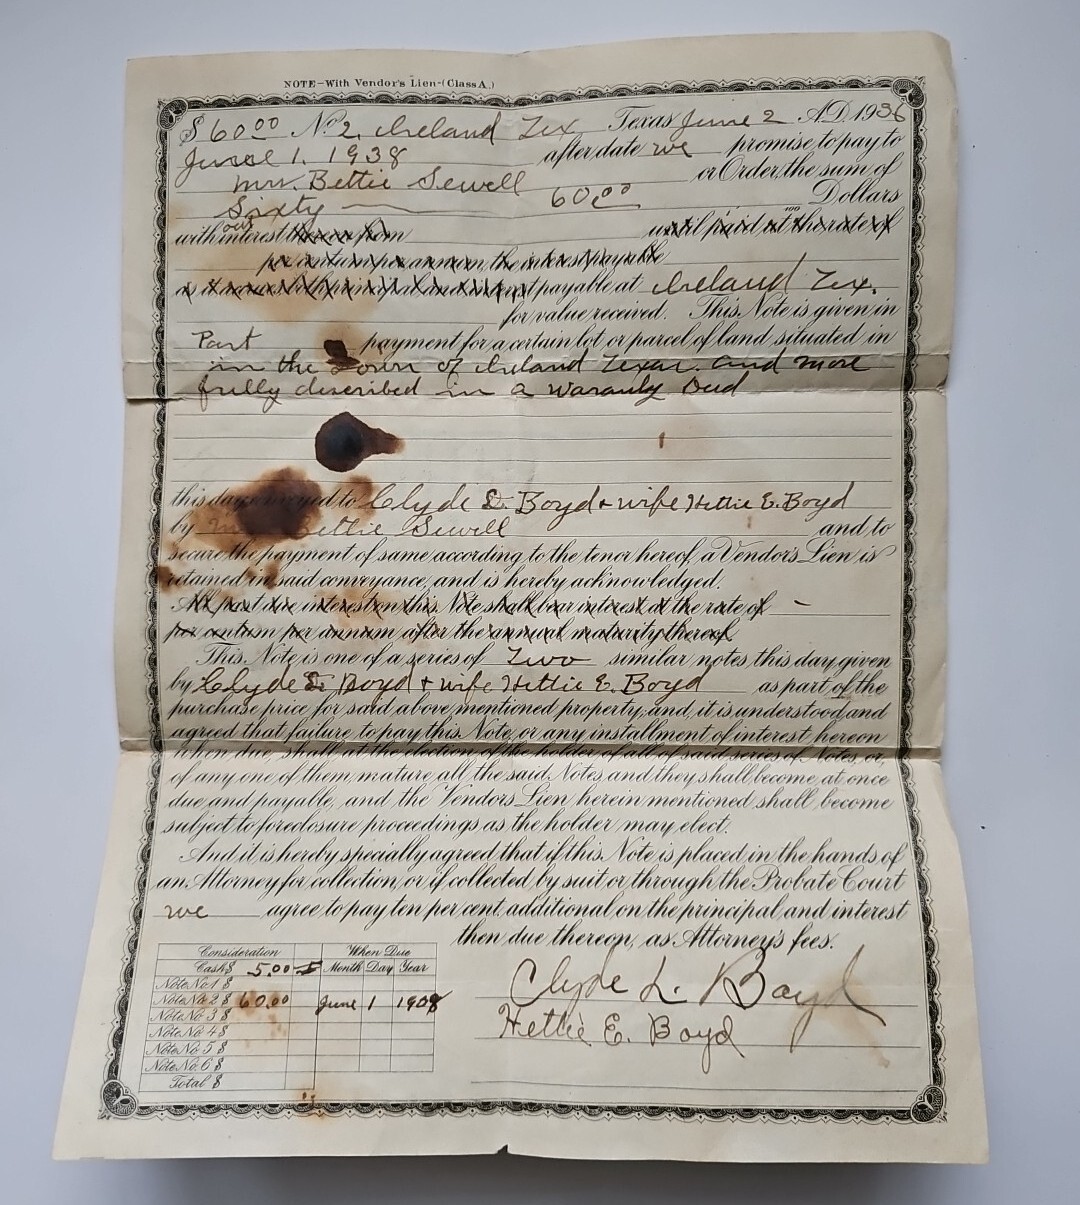 NOTE-With Vendor's Lien-(Class A.)
$ 60 00 No 2. Ireland Tex Texas June 2 A.D. 1936
June 1. 1938 after date we promise to pay to
Mrs. Bettie Sewell or Order, the sum of
Sixty 60.00 Dollars
100
with out interest from until paid at the rate of
per centum per annum, the interest payable
payable at Ireland Tex.
for value received. This Note is given in
Part payment for a certain lot or parcel of land situated in
in the Town of Ireland Texas. and more
fully described in a Waranty Deed
this day to Clyde L. Boyd + wife Hettie E. Boyd
by Bettie Sewell and to
secure the payment of same according to the tenor hereof, a Vendor's Lien is
retained in said conveyance, and is hereby acknowledged.
All past due interest on this Note shall bear interest at the rate of -
per centum per annum after the annual maturity thereof.
This Note is one of a series of Two similar notes this day given
by Clyde L. Boyd + wife Hettie E. Boyd as part of the
purchase price for said above mentioned property, and it is understood and
agreed that failure to pay this Note, or any installment of interest hereon
when due, shall at the election of the holder of all of said series of Notes, or,
of any one of them mature all the said Notes and they shall become, at once
due and payable, and the Vendors Lien herein mentioned shall become
subject to foreclosure proceedings as the holder may elect.
And it is herby specially agreed that if this Note is placed in the hands of
an Attorney for collection, or if collected by suit or through the Probate Court
we agree to pay ten per cent. additional on the principal and interest
then due thereon, as Attorney's fees.
Consideration When Due
Cash $ 5.00 Month Day Year
Note No 1 $
Note No 2 $ 60.00 June 1 1938
Note No 3 $
Note No 4 $
Note No 5 $
Note No. 6 $
Total $
Clyde L. Boyd
Hettie E. Boyd